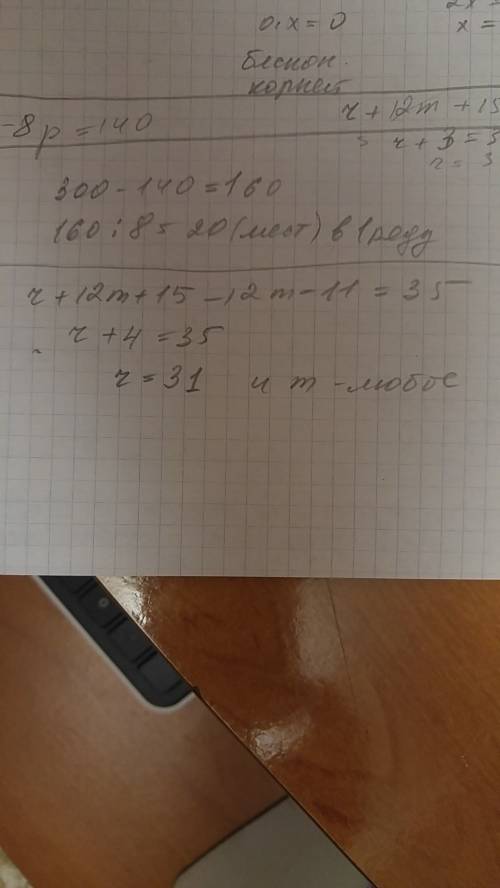 0.x = 0
2x =
x =
бескон.
корней
-8p = 140
r + 12m + 15
r + 3 = 3
r = 3
300 - 140 = 160
160 : 8 = 20 (мест) в 1 ряду
r + 12m + 15 - 12m - 11 = 35
r + 4 = 35
r = 31 и m - любое